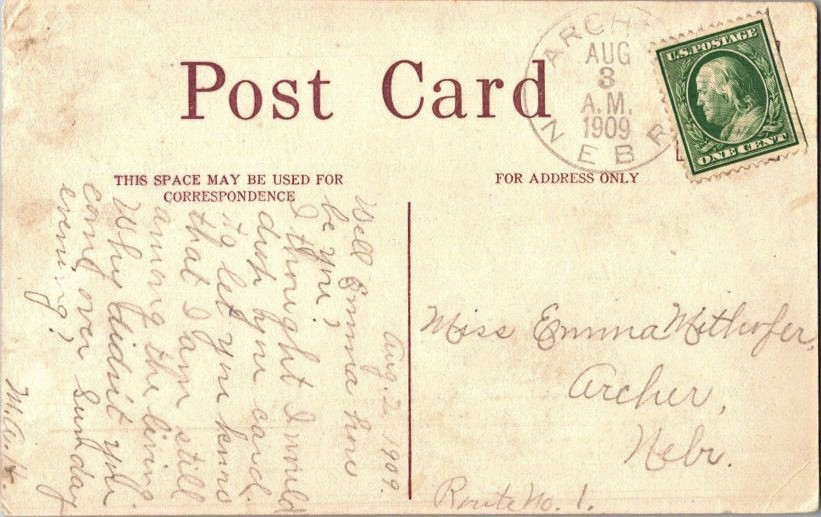 Post Card
ARCH
AUG
3
A.M.
1909
NEBR
U.S. POSTAGE
ONE CENT
THIS SPACE MAY BE USED FOR
CORRESPONDENCE
FOR ADDRESS ONLY
Aug. 2, 1909.
Well Emma how
be you?
I thought I would
drop you card
to let you know
that I am still
among the living
Why didn't you
come over Sunday
evening?
Miss Emma Mithofer,
Archer,
Nebr.
Route No. 1.